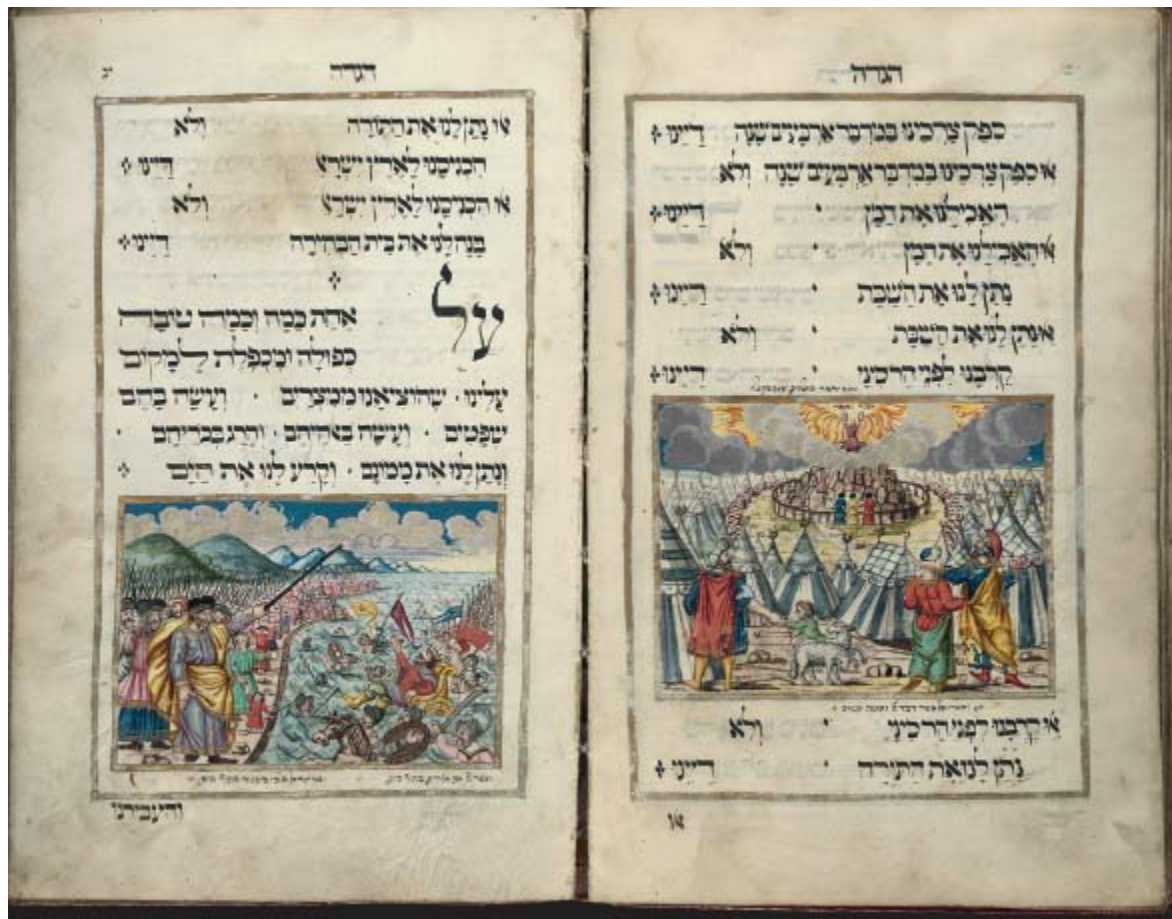 הגדה
ספק צרכינו במדבר ארבעים שנה דיינו
או ספק צרכינו במדבר ארבעים שנה ולא
האכילנו את המן דיינו
או האכילנו את המן ולא
נתן לנו את השבת דיינו
או נתן לנו את השבת ולא
קרבנו לפני הר סיני דיינו
או קרבנו לפני הר סיני ולא
נתן לנו את התורה דיינו
או
הגדה
יג
או נתן לנו את התורה ולא
הכניסנו לארץ ישרא דיינו
או הכניסנו לארץ ישרא ולא
בנה לנו את בית הבחירה דיינו
על אחת כמה וכמה טובה
כפולה ומכפלת למקום
עלינו · שהוציאנו ממצרים · ועשה בהם
שפטים · ועשה באהיהם · והרג בכריהם ·
ונתן לנו את ממונם · וקרע לנו את הים
והעבירנו